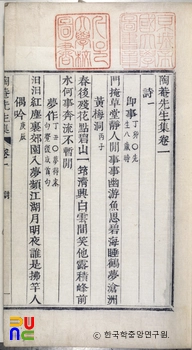 陶菴先生集卷一
詩一
卽事
門掩草堂靜人閒事事幽游魚思碧海睡鶴夢滄洲
黃梅洞 丙子
春後殘花點碧山一筇淸興白雲間笑他露積峰前
水何事奔流不暫閒
夢作
汨汨紅塵裏郊園入夢頻江湖月明夜誰是拂竿人
偶吟 庚辰
陶菴先生集 卷一
© 한국학중앙연구원